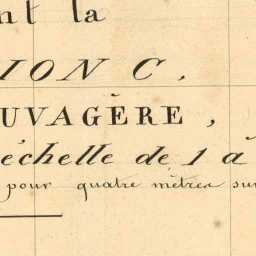 nt la
ION C,
UVAGÈRE,
échelle de 1 à
pour quatre mètres sur